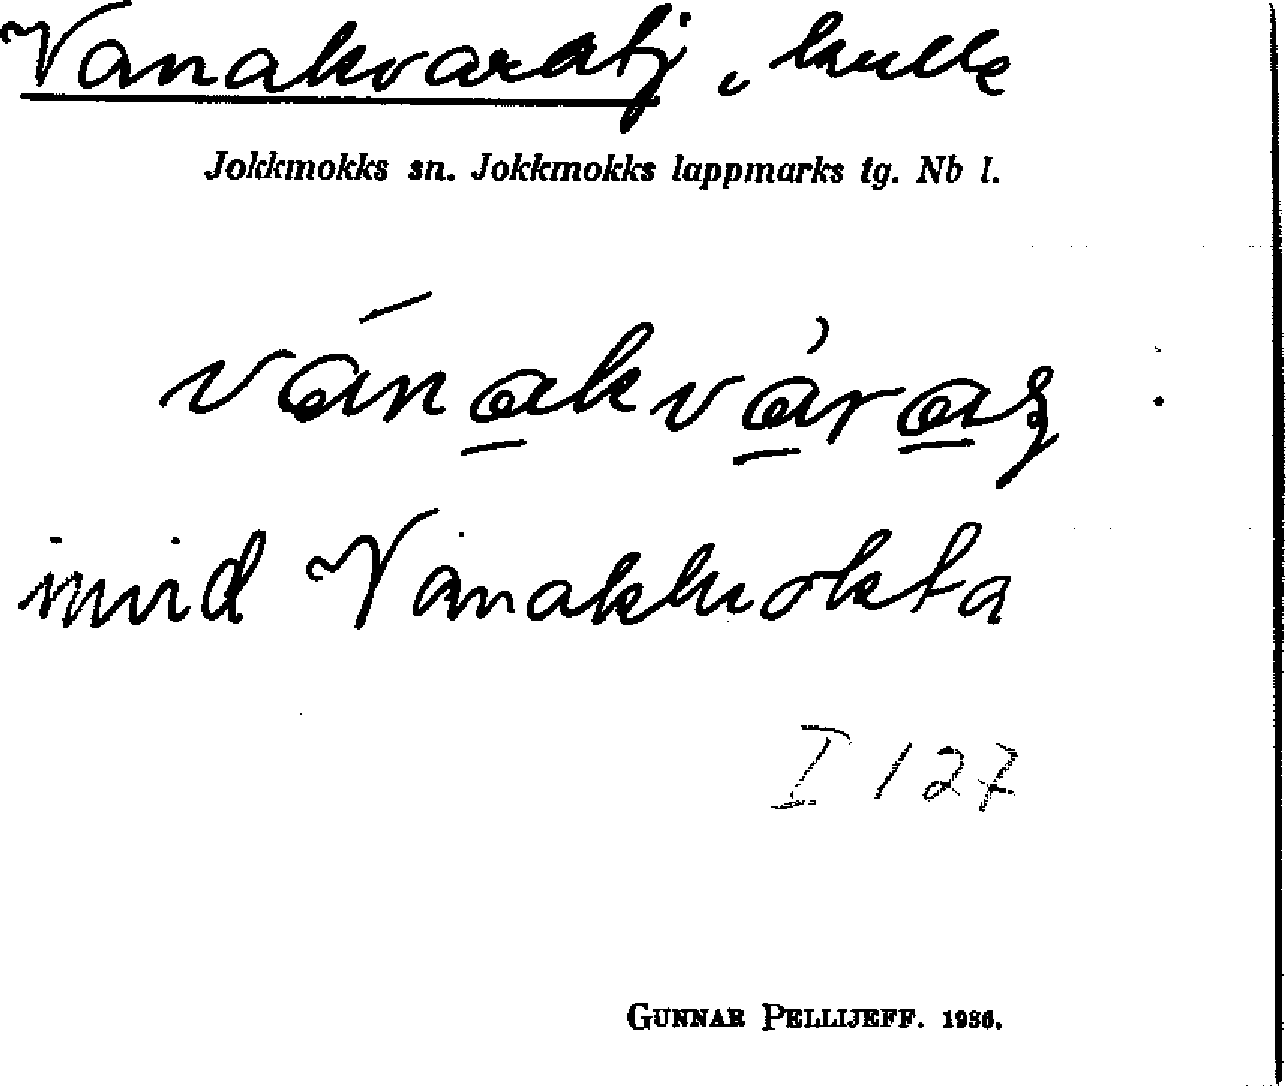 Vanakvaratj, kulle
Jokkmokks sn. Jokkmokks lappmarks tg. Nb l.
invid Vanakluokta
I 127
GUNNAR PELLIJEFF. 1936.